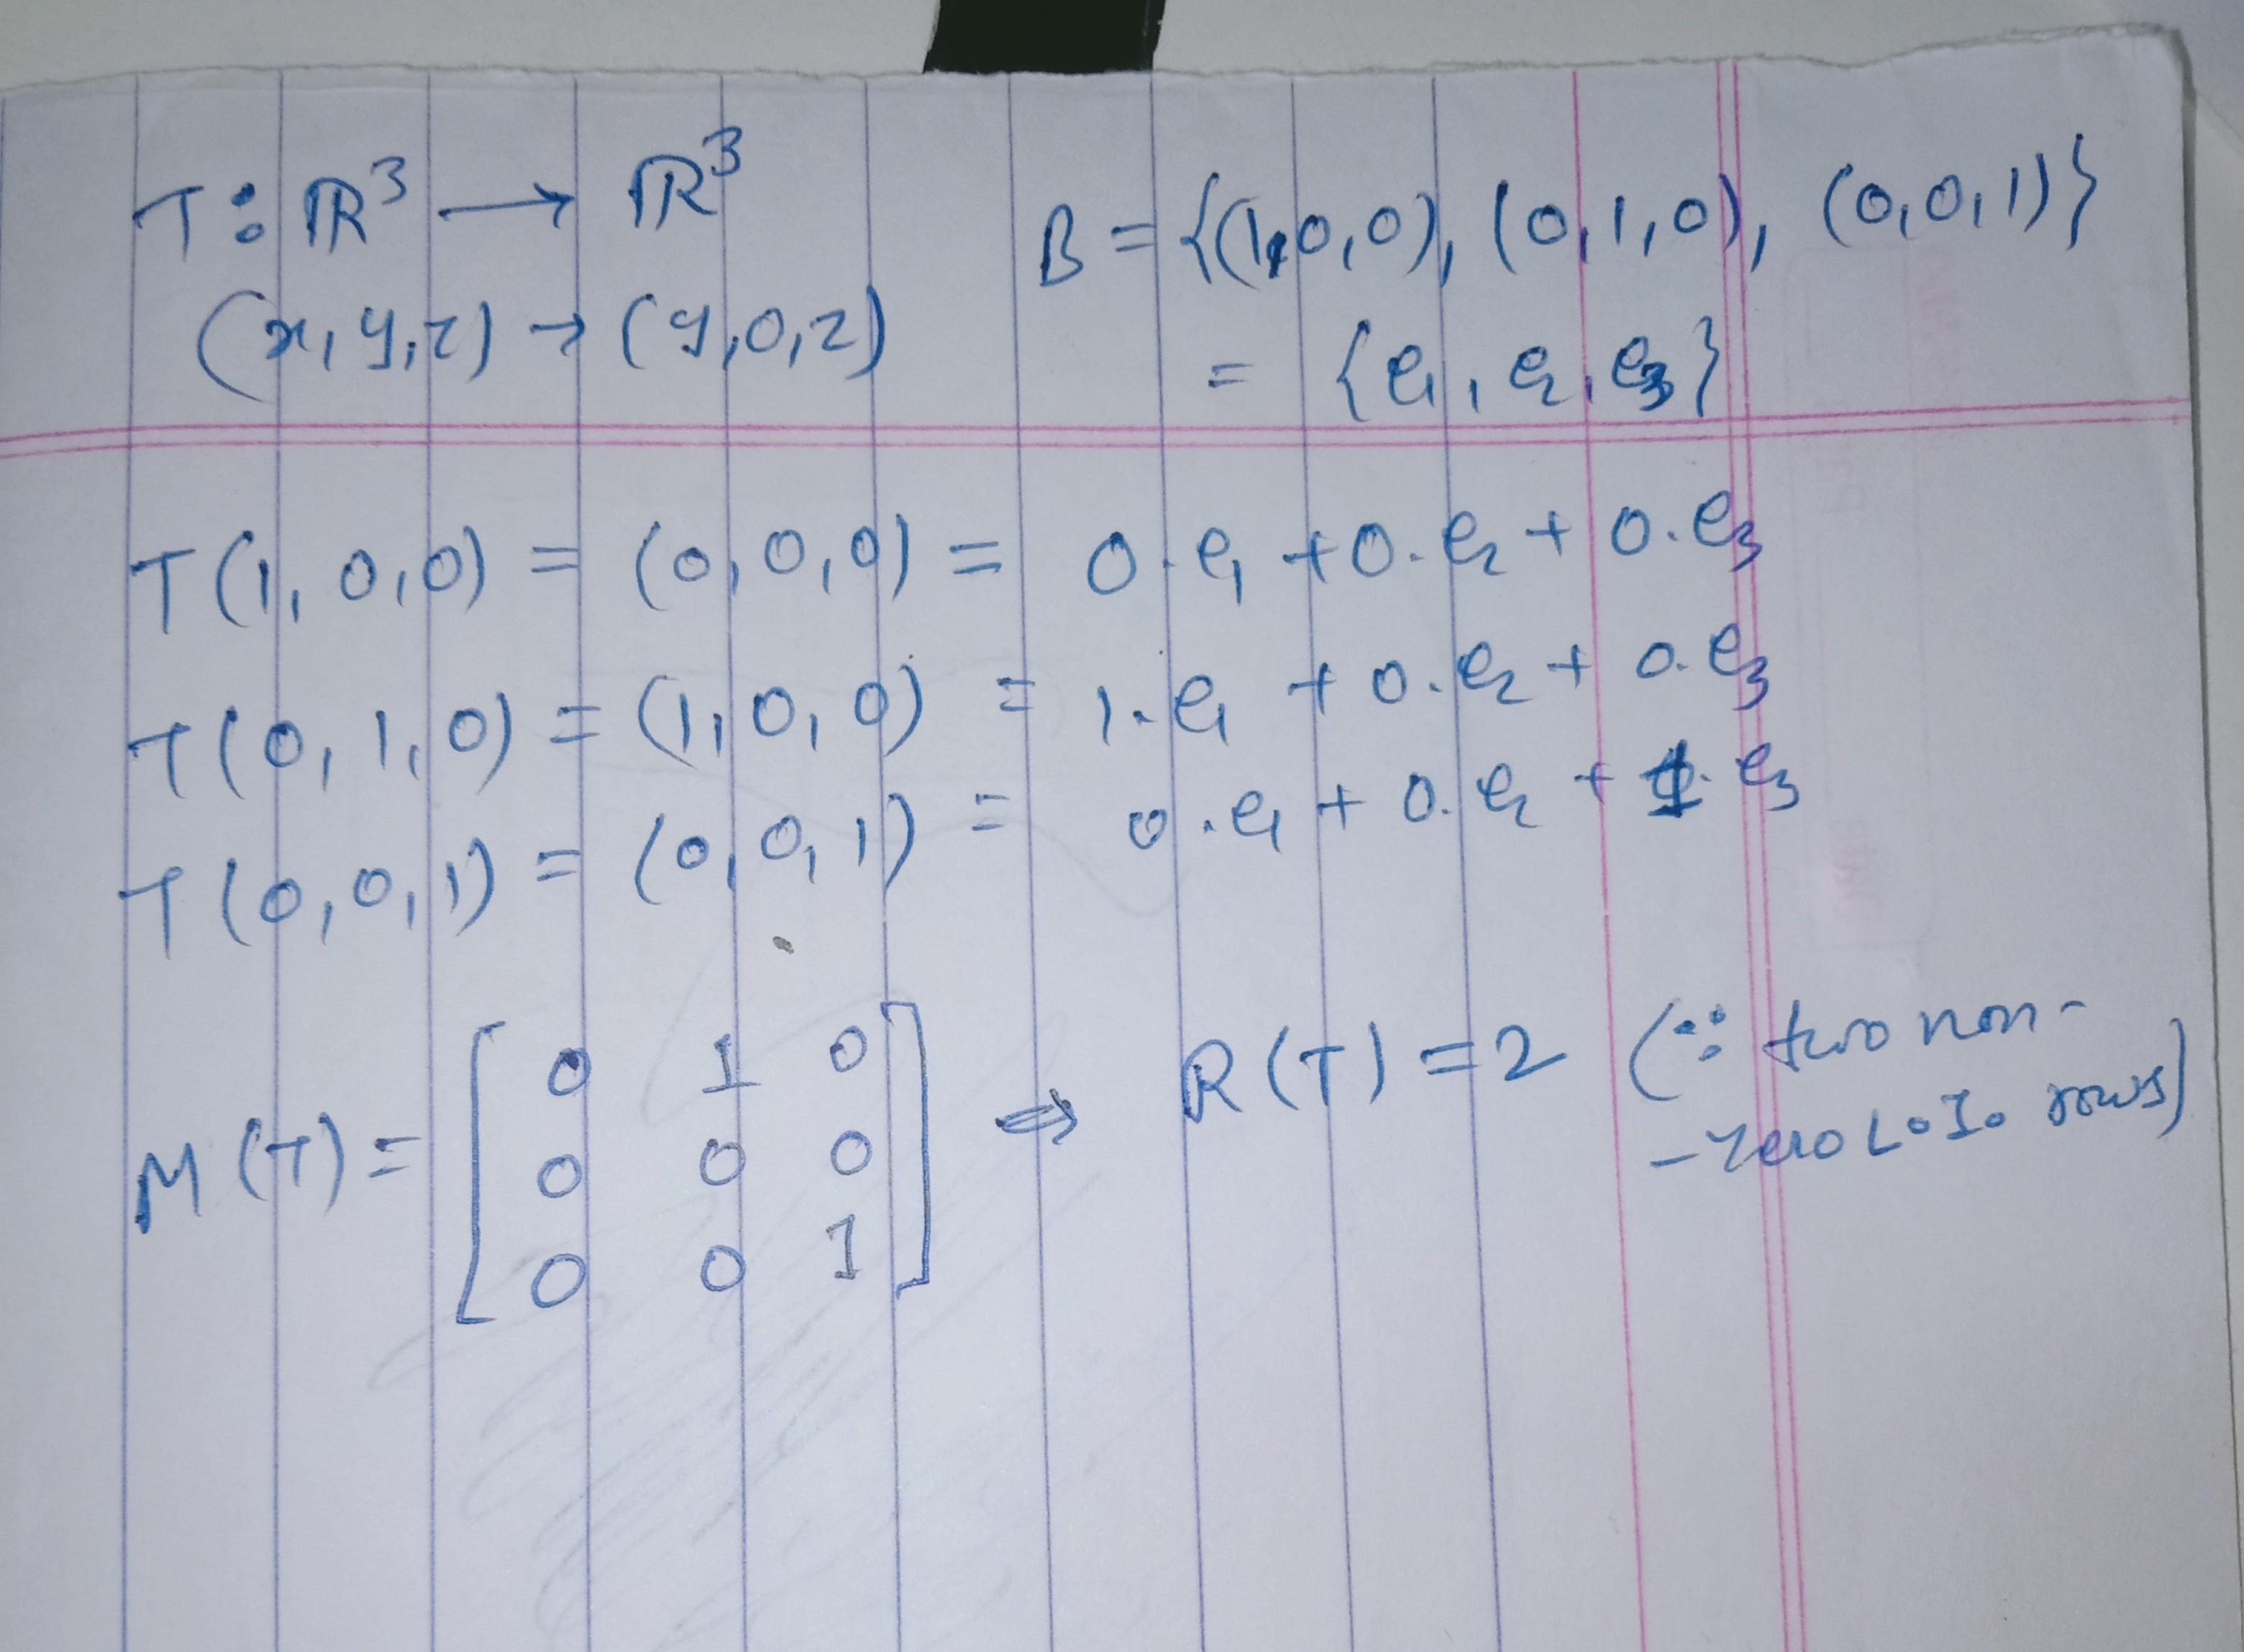 T : ℝ³ → ℝ³
(x, y, z) → (y, 0, z)
B = {(1,0,0), (0,1,0), (0,0,1)}
= {e₁, e₂, e₃}
T(1, 0, 0) = (0, 0, 0) = 0.e₁ + 0.e₂ + 0.e₃
T(0, 1, 0) = (1, 0, 0) = 1.e₁ + 0.e₂ + 0.e₃
T(0, 0, 1) = (0, 0, 1) = 0.e₁ + 0.e₂ + 1.e₃
M(T) = [0 1 0
0 0 0
0 0 1]
⇒ R(T) = 2 (∵ two non-
-zero L.I. rows)